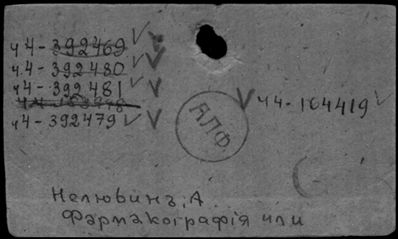 ч4-392469
ч4-392480
ч4-392481
ч4-392479
АЛФ
ч4-104419
Нелюбинъ, А
Фармакографія или